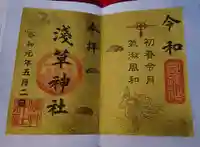 令和
初春令月
氣淑風和
奉拝
淺草神社
令和元年五月二日